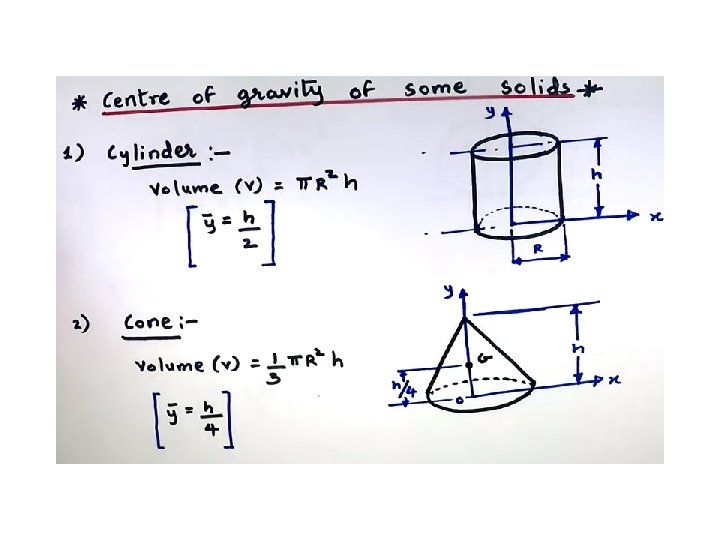 * Centre of gravity of some solids *
1) Cylinder :-
Volume (V) = πR²h
[ȳ = h/2]
y
h
x
R
2) Cone :-
Volume (V) = 1/3 πR²h
[ȳ = h/4]
y
G
h
h/4
o
x